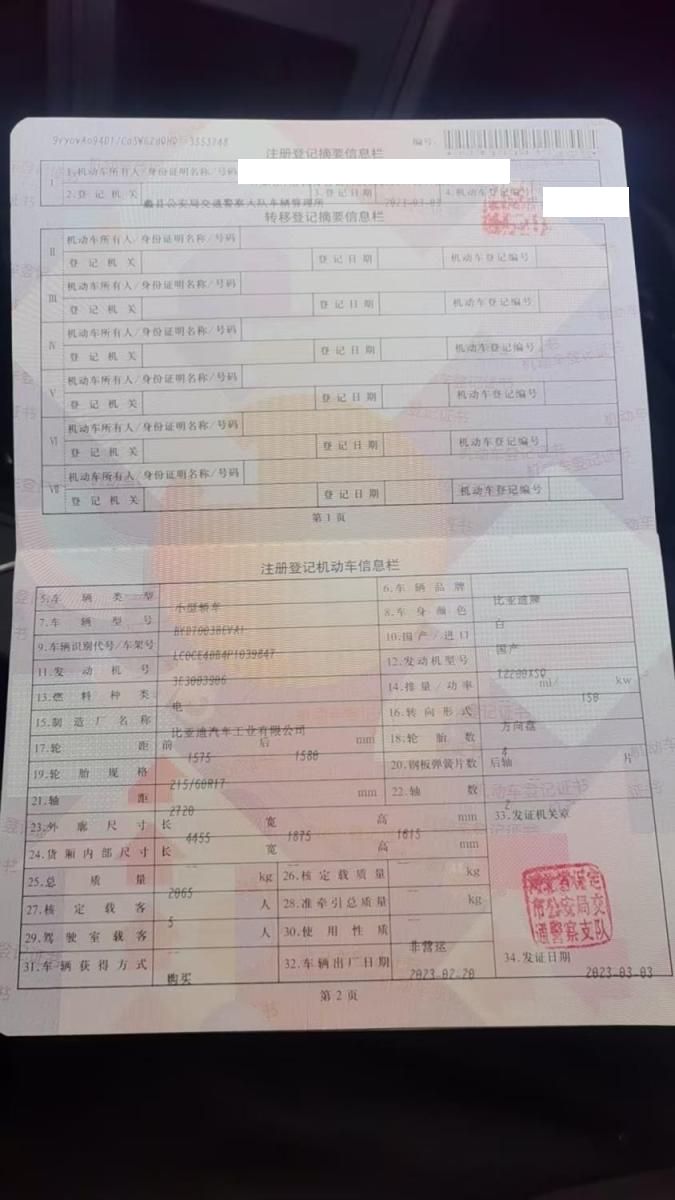 编号:
注册登记摘要信息栏
Ⅰ 1.机动车所有人/身份证明名称/号码
2.登记机关 蠡县公安局交通警察大队车辆管理所 3.登记日期 2023-03-03 4.机动车登记编号
转移登记摘要信息栏
Ⅱ 机动车所有人/身份证明名称/号码
登记机关 登记日期 机动车登记编号
Ⅲ 机动车所有人/身份证明名称/号码
登记机关 登记日期 机动车登记编号
Ⅳ 机动车所有人/身份证明名称/号码
登记机关 登记日期 机动车登记编号
Ⅴ 机动车所有人/身份证明名称/号码
登记机关 登记日期 机动车登记编号
Ⅵ 机动车所有人/身份证明名称/号码
登记机关 登记日期 机动车登记编号
Ⅶ 机动车所有人/身份证明名称/号码
登记机关 登记日期 机动车登记编号
第1页
注册登记机动车信息栏
5.车辆类型 小型轿车 6.车辆品牌 比亚迪牌
7.车辆型号 BYD7003BEVA1 8.车身颜色 白
9.车辆识别代号/车架号 LC0CE4DB4P1039847 10.国产/进口 国产
11.发动机号 3F3003906 12.发动机型号 TZ200XSQ
13.燃料种类 电 14.排量/功率 ml/ 150 kw
15.制造厂名称 比亚迪汽车工业有限公司 16.转向形式 方向盘
17.轮距 前 1575 后 1580 mm 18.轮胎数 4
19.轮胎规格 215/60R17 20.钢板弹簧片数 后轴 片
21.轴距 2720 mm 22.轴数 2
23.外廓尺寸 长 4455 宽 1875 高 1615 mm 33.发证机关章
24.货厢内部尺寸 长 -- 宽 -- 高 -- mm
25.总质量 2065 kg 26.核定载质量 -- kg
27.核定载客 5 人 28.准牵引总质量 -- kg
29.驾驶室载客 -- 人 30.使用性质 非营运
31.车辆获得方式 购买 32.车辆出厂日期 2023-02-20 34.发证日期 2023-03-03
河北省保定
市公安局交
通警察支队
第2页